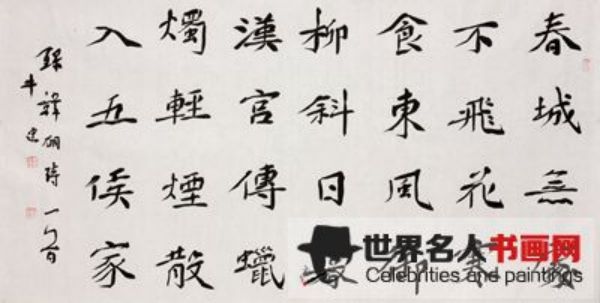 春城無處
不飛花寒
食東風御
柳斜日暮
漢宮傳蠟
燭輕煙散
入五侯家
錄韓翃詩一首
世界名人书画网
Celebrities and paintings